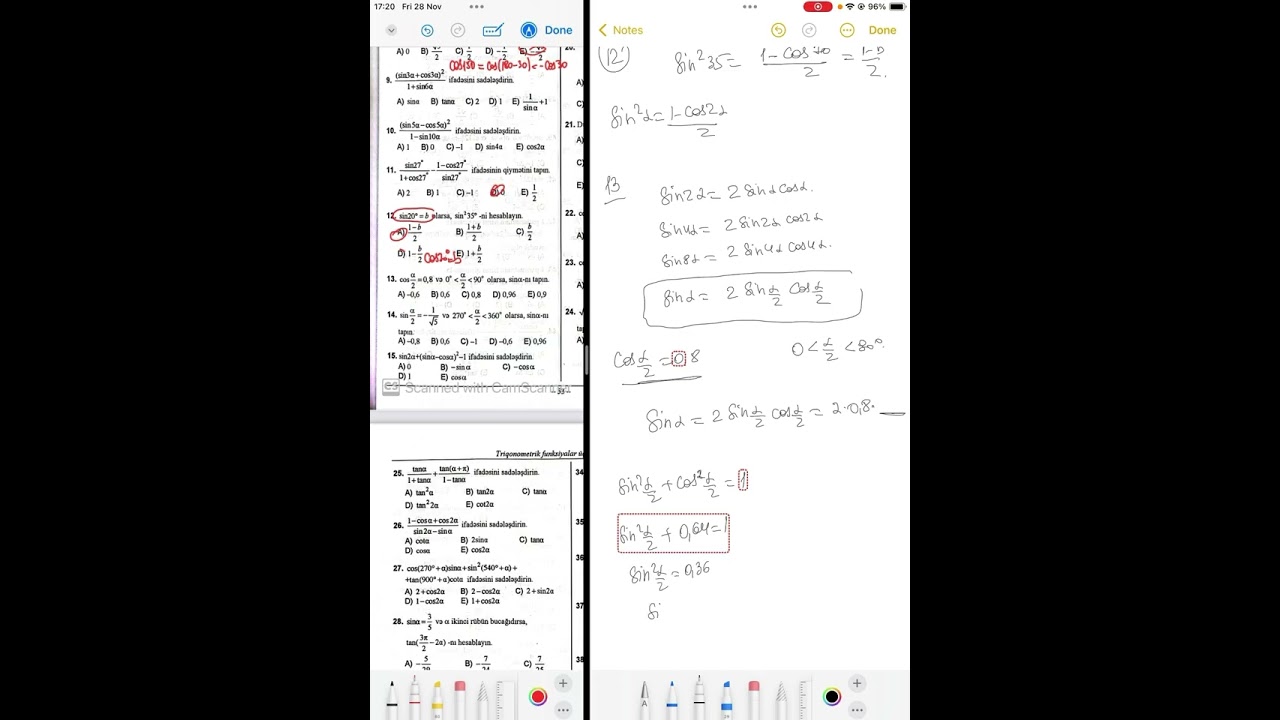 17:20 Fri 28 Nov
96%
Done
Notes
Done
A) 0 B) C) D) E)
cos150 = cos(180-30) = -cos30
9. (sin3α+cos3α)²/(1+sin6α) ifadəsini sadələşdirin.
A) sinα B) tanα C) 2 D) 1 E) 1/sinα +1
10. (sin5α−cos5α)²/(1−sin10α) ifadəsini sadələşdirin.
A) 1 B) 0 C) −1 D) sin4α E) cos2α
11. sin27°/(1+cos27°) − (1−cos27°)/sin27° ifadəsinin qiymətini tapın.
A) 2 B) 1 C) −1 D) 0 E) 1/2
12. sin20° = b olarsa, sin²35° -ni hesablayın.
A) (1−b)/2 B) (1+b)/2 C) b/2
D) 1−b/2 E) 1+b/2
cos70=b
13. cos α/2 = 0,8 və 0° < α/2 < 90° olarsa, sinα-nı tapın.
A) −0,6 B) 0,6 C) 0,8 D) 0,96 E) 0,9
14. sin α/2 = −1/√5 və 270° < α/2 < 360° olarsa, sinα-nı
tapın.
A) −0,8 B) 0,6 C) −1 D) −0,6 E) 0,96
15. sin2α+(sinα−cosα)²−1 ifadəsini sadələşdirin.
A) 0 B) −sinα C) −cosα
D) 1 E) cosα
CS Scanned with CamScanner
21.
22.
23.
24.
Triqonometrik funksiyalar
25. tanα/(1+tanα) + tan(α+π)/(1−tanα) ifadəsini sadələşdirin.
A) tan²α B) tan2α C) tanα
D) tan²2α E) cot2α
26. (1−cosα+cos2α)/(sin2α−sinα) ifadəsini sadələşdirin.
A) cotα B) 2sinα C) tanα
D) cosα E) cos2α
27. cos(270°+α)sinα+sin²(540°+α)+
+tan(900°+α)cotα ifadəsini sadələşdirin.
A) 2+cos2α B) 2−cos2α C) 2+sin2α
D) 1−cos2α E) 1+cos2α
28. sinα = 3/5 və α ikinci rübün bucağıdırsa,
tan(3π/2 − 2α) -nı hesablayın.
34
35
36
37
38
12
sin²35 = (1−cos70)/2 = (1−b)/2.
sin²α = (1−cos2α)/2
13
sin2α = 2 sinα cosα.
sin4α = 2 sin2α cos2α
sin8α = 2 sin4α cos4α.
sinα = 2 sin α/2 cos α/2
cos α/2 = 0,8
0 < α/2 < 90°.
sinα = 2 sin α/2 cos α/2 = 2·0,8·
sin² α/2 + cos² α/2 = 1
sin² α/2 + 0,64 = 1
sin² α/2 = 0,36
si